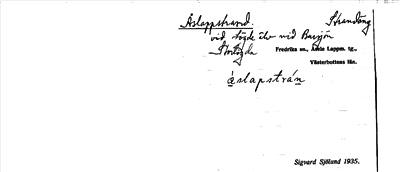 Åslappstrand. Strandäng
vid Lögde älv vid Bursjön
Stortögda Fredrika sn., Åsele Lappm. tg.,
Västerbottens län.
åslapstrán
Sigvard Sjölund 1935.